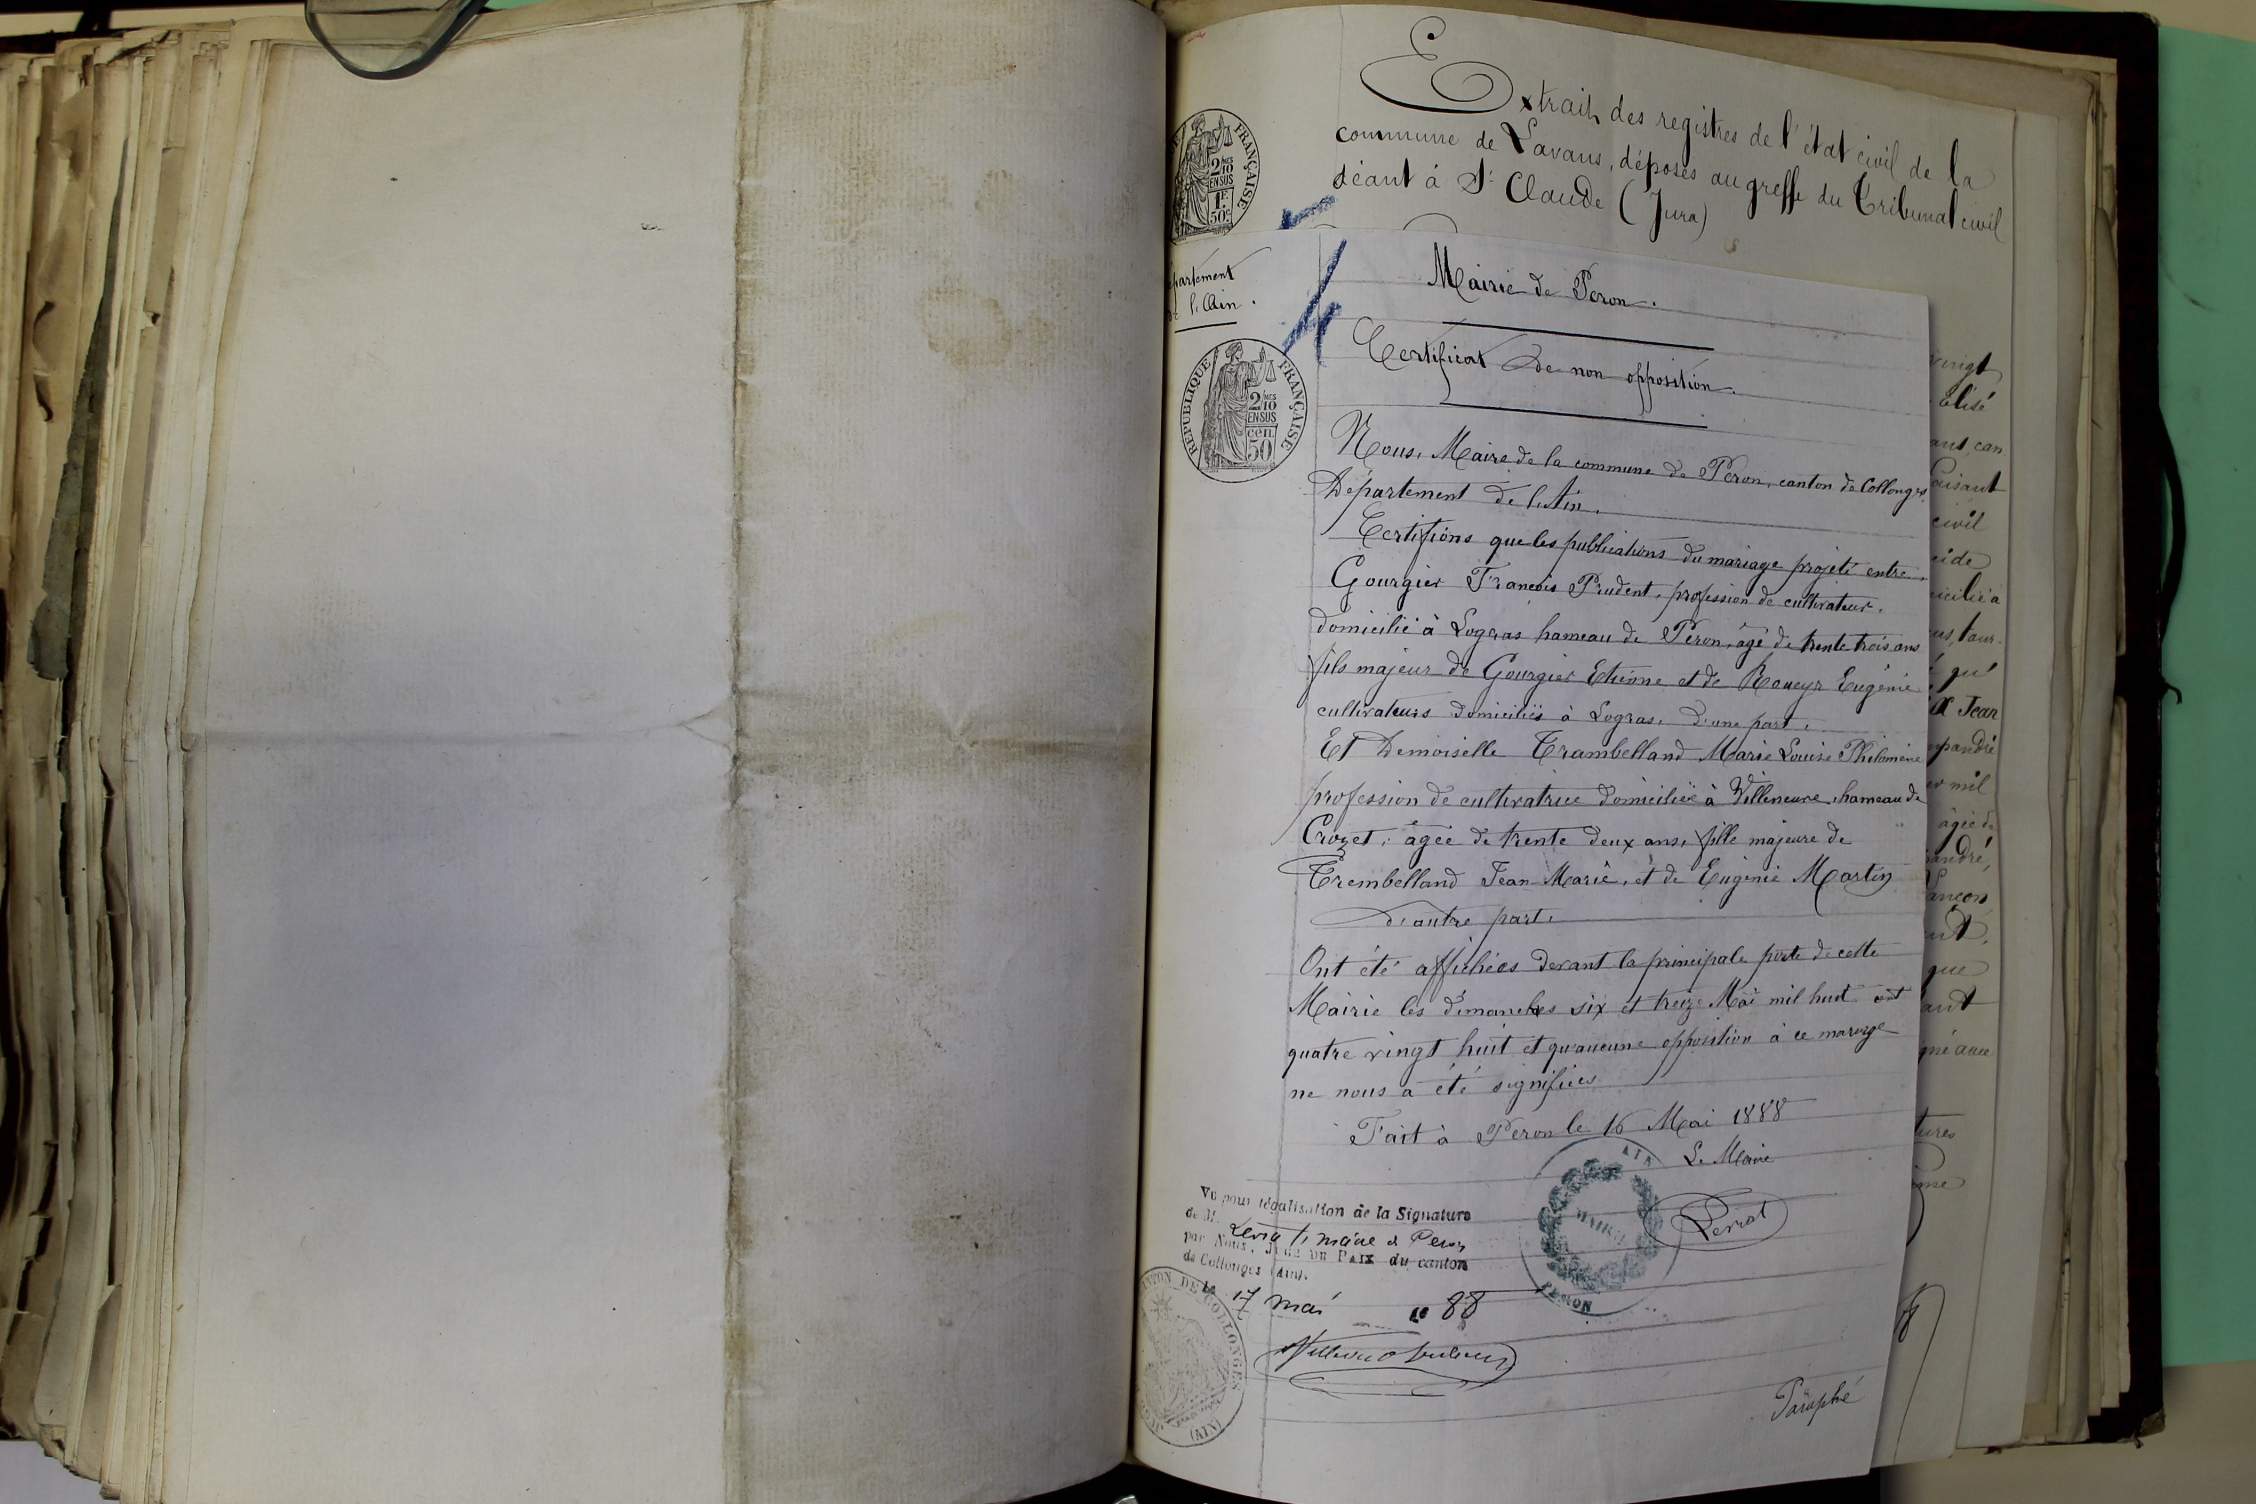 Extrait des registres de l'état civil de la
commune de Lavans, déposés au greffe du Tribunal civil
séant à St Claude (Jura)
FRANÇAISE
2/10 MES
EN SUS
1F
50c
partement
de l'Ain.
Mairie de Péron.
Certificat de non opposition.
REPUBLIQUE FRANÇAISE
2/10 MES
EN SUS
cen.
50
Nous, Maire de la commune de Péron, canton de Collonges
Département de l'Ain.
Certifions que les publications du mariage projeté entre
Gourgier François Prudent, profession de cultivateur,
domicilié à Logras hameau de Péron, âgé de trente trois ans
fils majeur de Gourgier Etienne et de Roueyr Eugénie
cultivateurs domiciliés à Logras, d'une part,
Et Demoiselle Trambelland Marie Louise Philomène
profession de cultivatrice domiciliée à Villeneuve, hameau de
Crozet, âgée de trente deux ans, fille majeure de
Trembelland Jean Marie, et de Eugénie Martin
d'autre part,
Ont été affichées devant la principale porte de cette
Mairie les dimanches six et treize Mai mil huit cent
quatre vingt huit et qu'aucune opposition à ce mariage
ne nous a été signifiées
Fait à Péron le 16 Mai 1888
Le Maire
AIN
MAIRIE
PERON
Perrot
Vu pour légalisation de la Signature
de M. maire de Peron
par Nous, JUGE DE PAIX du canton
de Collonges (Ain).
Le 17 mai 18 88
CANTON DE COLLONGES
(AIN)
Paraphé
vingt
Elisé
ant, can
civil
cide
cicilié à
qu'
Jean
mil
âgée de
andré,
ançois
que
tures